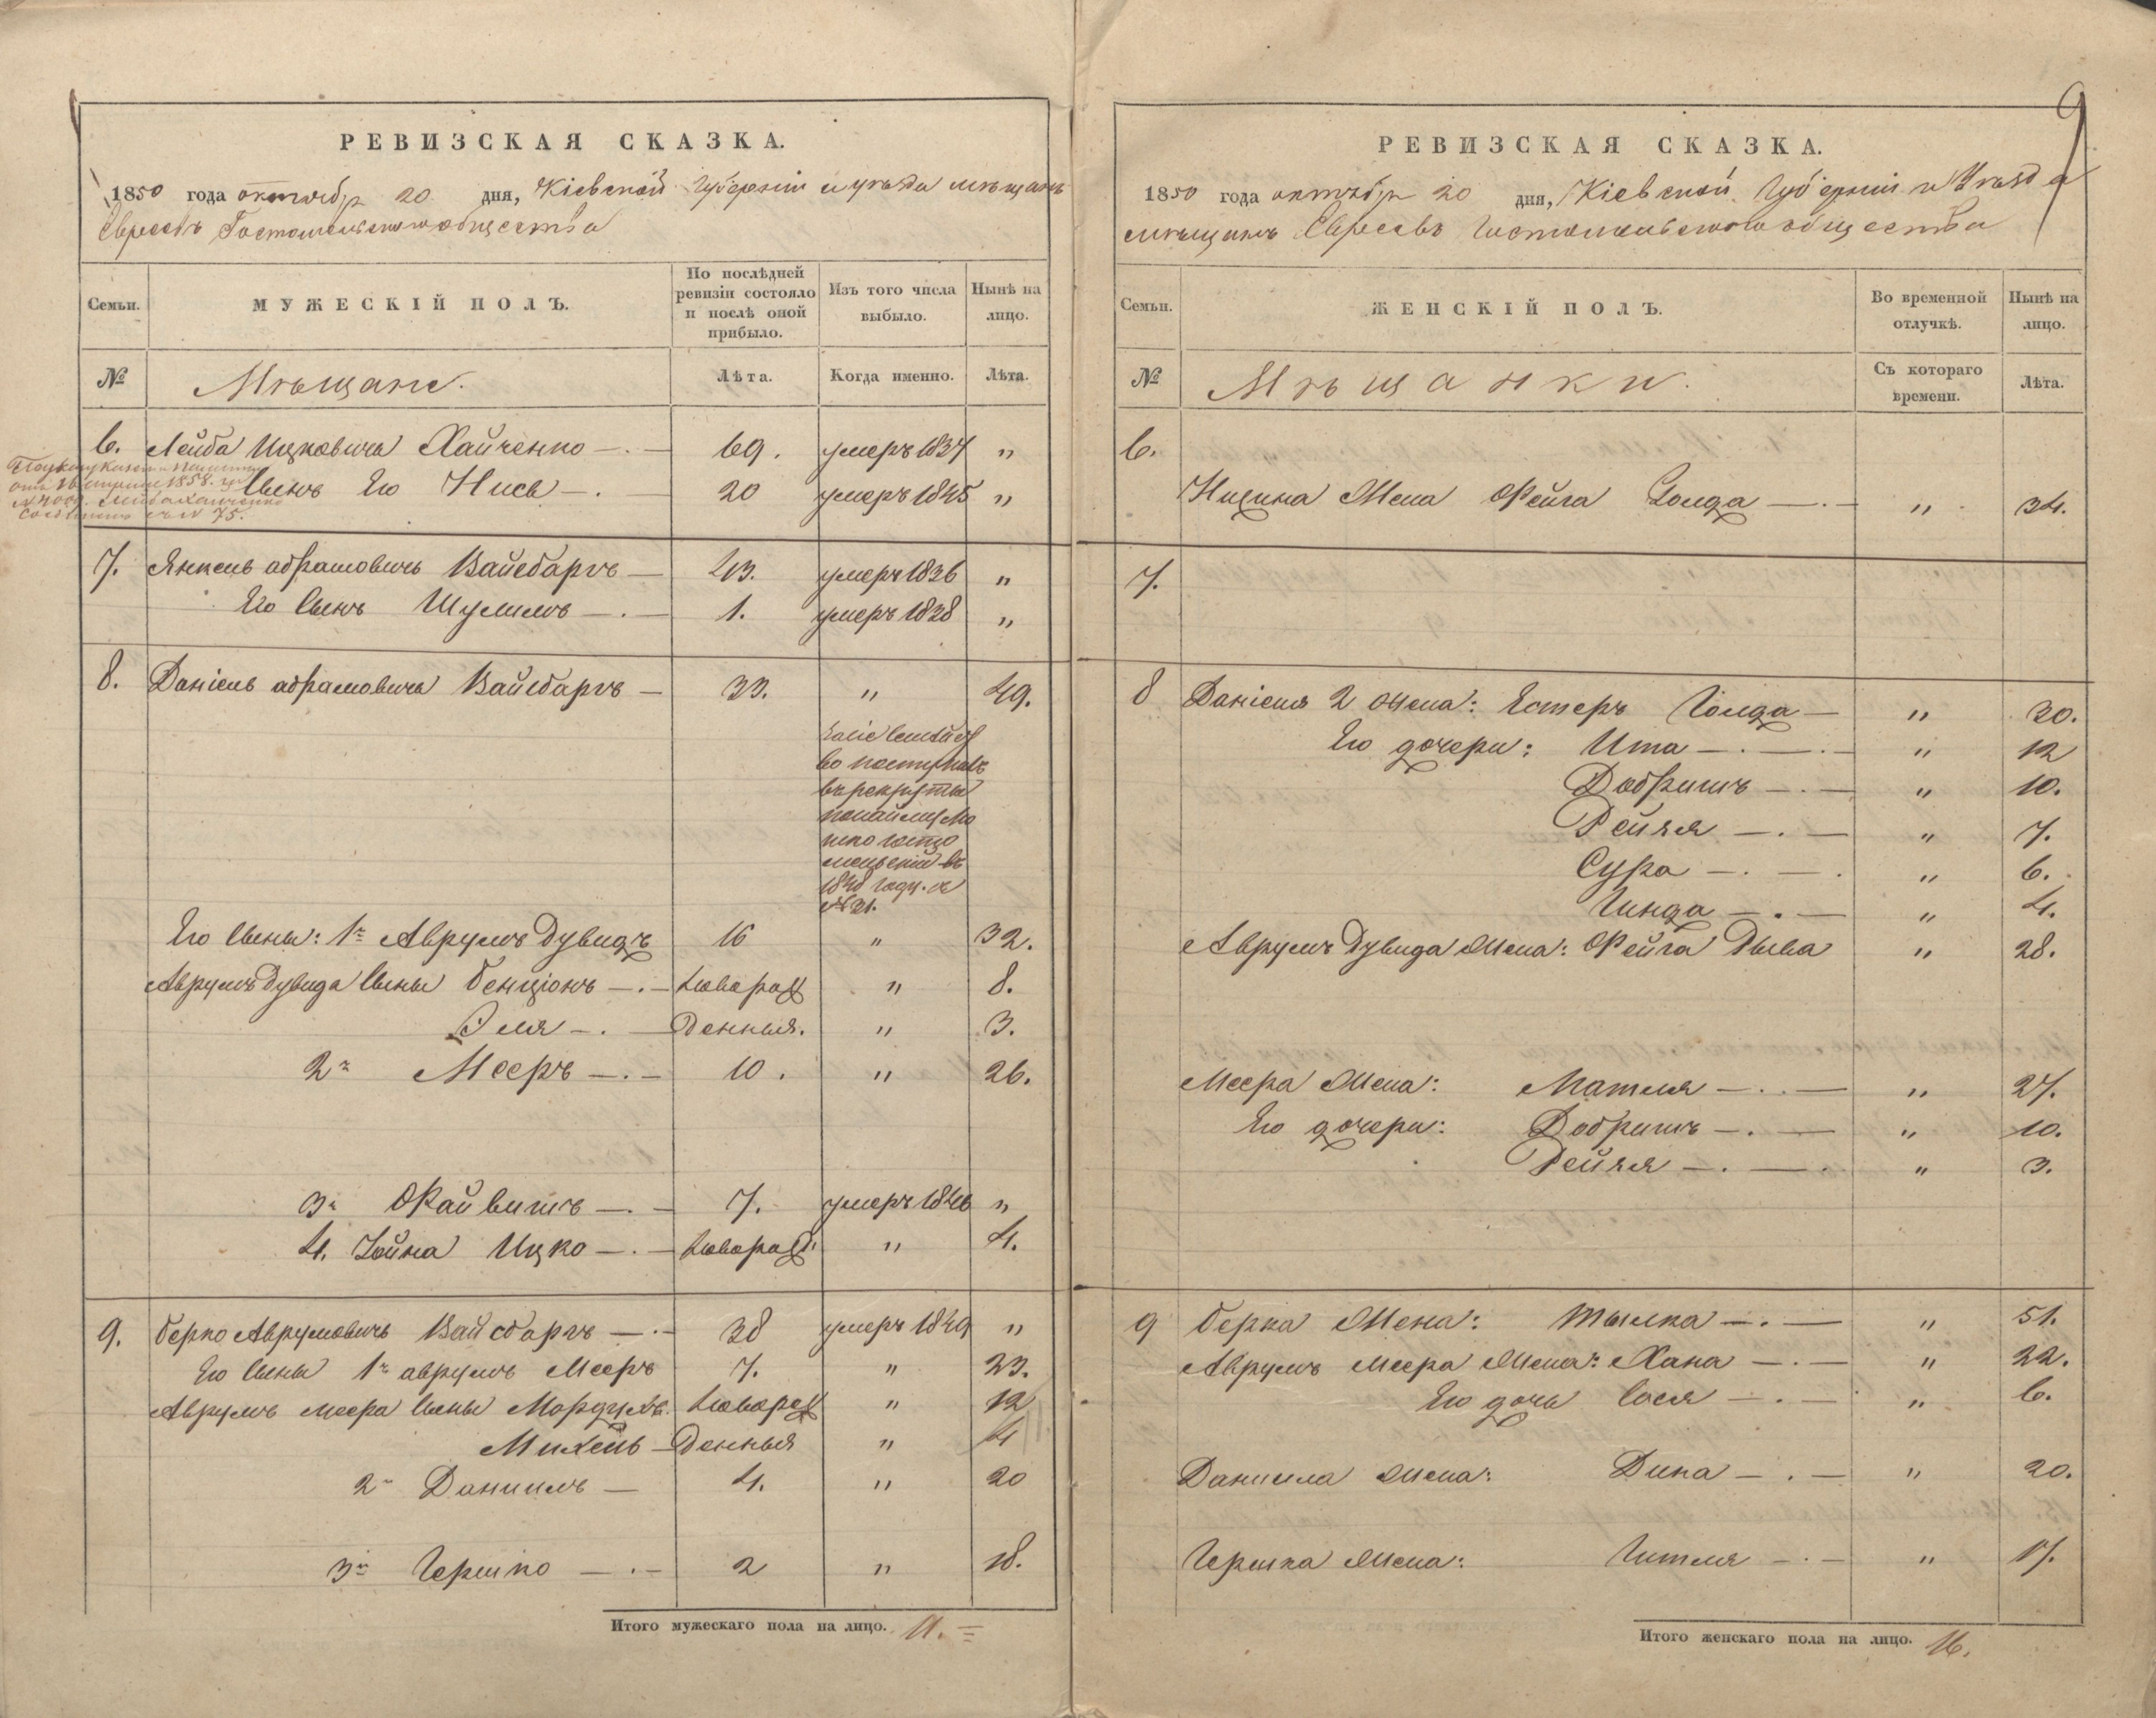 РЕВИЗСКАЯ СКАЗКА.
1850 года октябр 20 дня, Кіевской Губерніи и уѣзда мѣщанъ
Евреевъ Гостомельскаго общества
Семьи.
МУЖЕСКІЙ ПОЛЪ.
По послѣдней ревизіи состояло и послѣ оной прибыло.
Изъ того числа выбыло.
Нынѣ на лицо.
№ Мѣщане. Лѣта. Когда именно. Лѣта.
6. Лейба Ицковичъ Хайченко 69. умеръ 1837 "
1858.
№ 75.
Сынъ Его Нисъ 20 умеръ 1845 "
7. Янкель абрамовичъ Вайсбаргъ 43. умеръ 1836 "
Его Сынъ Шулимъ 1. умеръ 1838 "
8. Даніель абрамовичъ Вайсбаргъ 33. " 49.
во поступилъ
въ рекруты
въ
1848 году.
№ 21.
Его Сыны: 1й Аврумъ Дувидъ 16 " 32.
Аврумъ Дувида Сыны Бенціонъ новорож " 8.
Эля денныя. " 3.
2й Мееръ 10. " 26.
3й Файвишъ 7. умеръ 1846 "
4. Іойна Ицко новорожд. " 4.
9. Берко Аврумовичъ Вайсбаргъ 38 умеръ 1849 "
Его Сыны 1й аврумъ Мееръ 7. " 23.
Аврумъ Меера Сыны Мордухъ новорож " 12
Михель денныя " 4
2й Даниилъ 4. " 20
3й Гершко 2 " 18.
Итого мужескаго пола на лицо. 11.
9
РЕВИЗСКАЯ СКАЗКА.
1850 года октябр 20 дня, Кіевской Губерніи и Уѣзда
мѣщанъ Евреевъ Гостомельскаго общества
Семьи.
ЖЕНСКІЙ ПОЛЪ.
Во временной отлучкѣ.
Нынѣ на лицо.
№ Мѣщанки. Съ котораго времени. Лѣта.
6.
Жена Фейга Голда " 34.
7.
8 Даніеля 2 жена: Естеръ Голда " 30.
Его дочери: Ита " 12
Добришъ " 10.
Рейзя " 7.
Сура " 6.
Гинда " 4.
Аврумъ Дувида Жена: Фейга Дыва " 28.
Меера Жена: Матля " 27.
Его дочери: Добришъ " 10.
Рейзя " 3.
9 Берка Жена: Тылка " 51.
Аврумъ Меера Жена: Хана " 22.
Его дочь Сося " 6.
Даниила Жена: Дина " 20.
Гершка Жена: Гитля " 17.
Итого женскаго пола на лицо. 16.